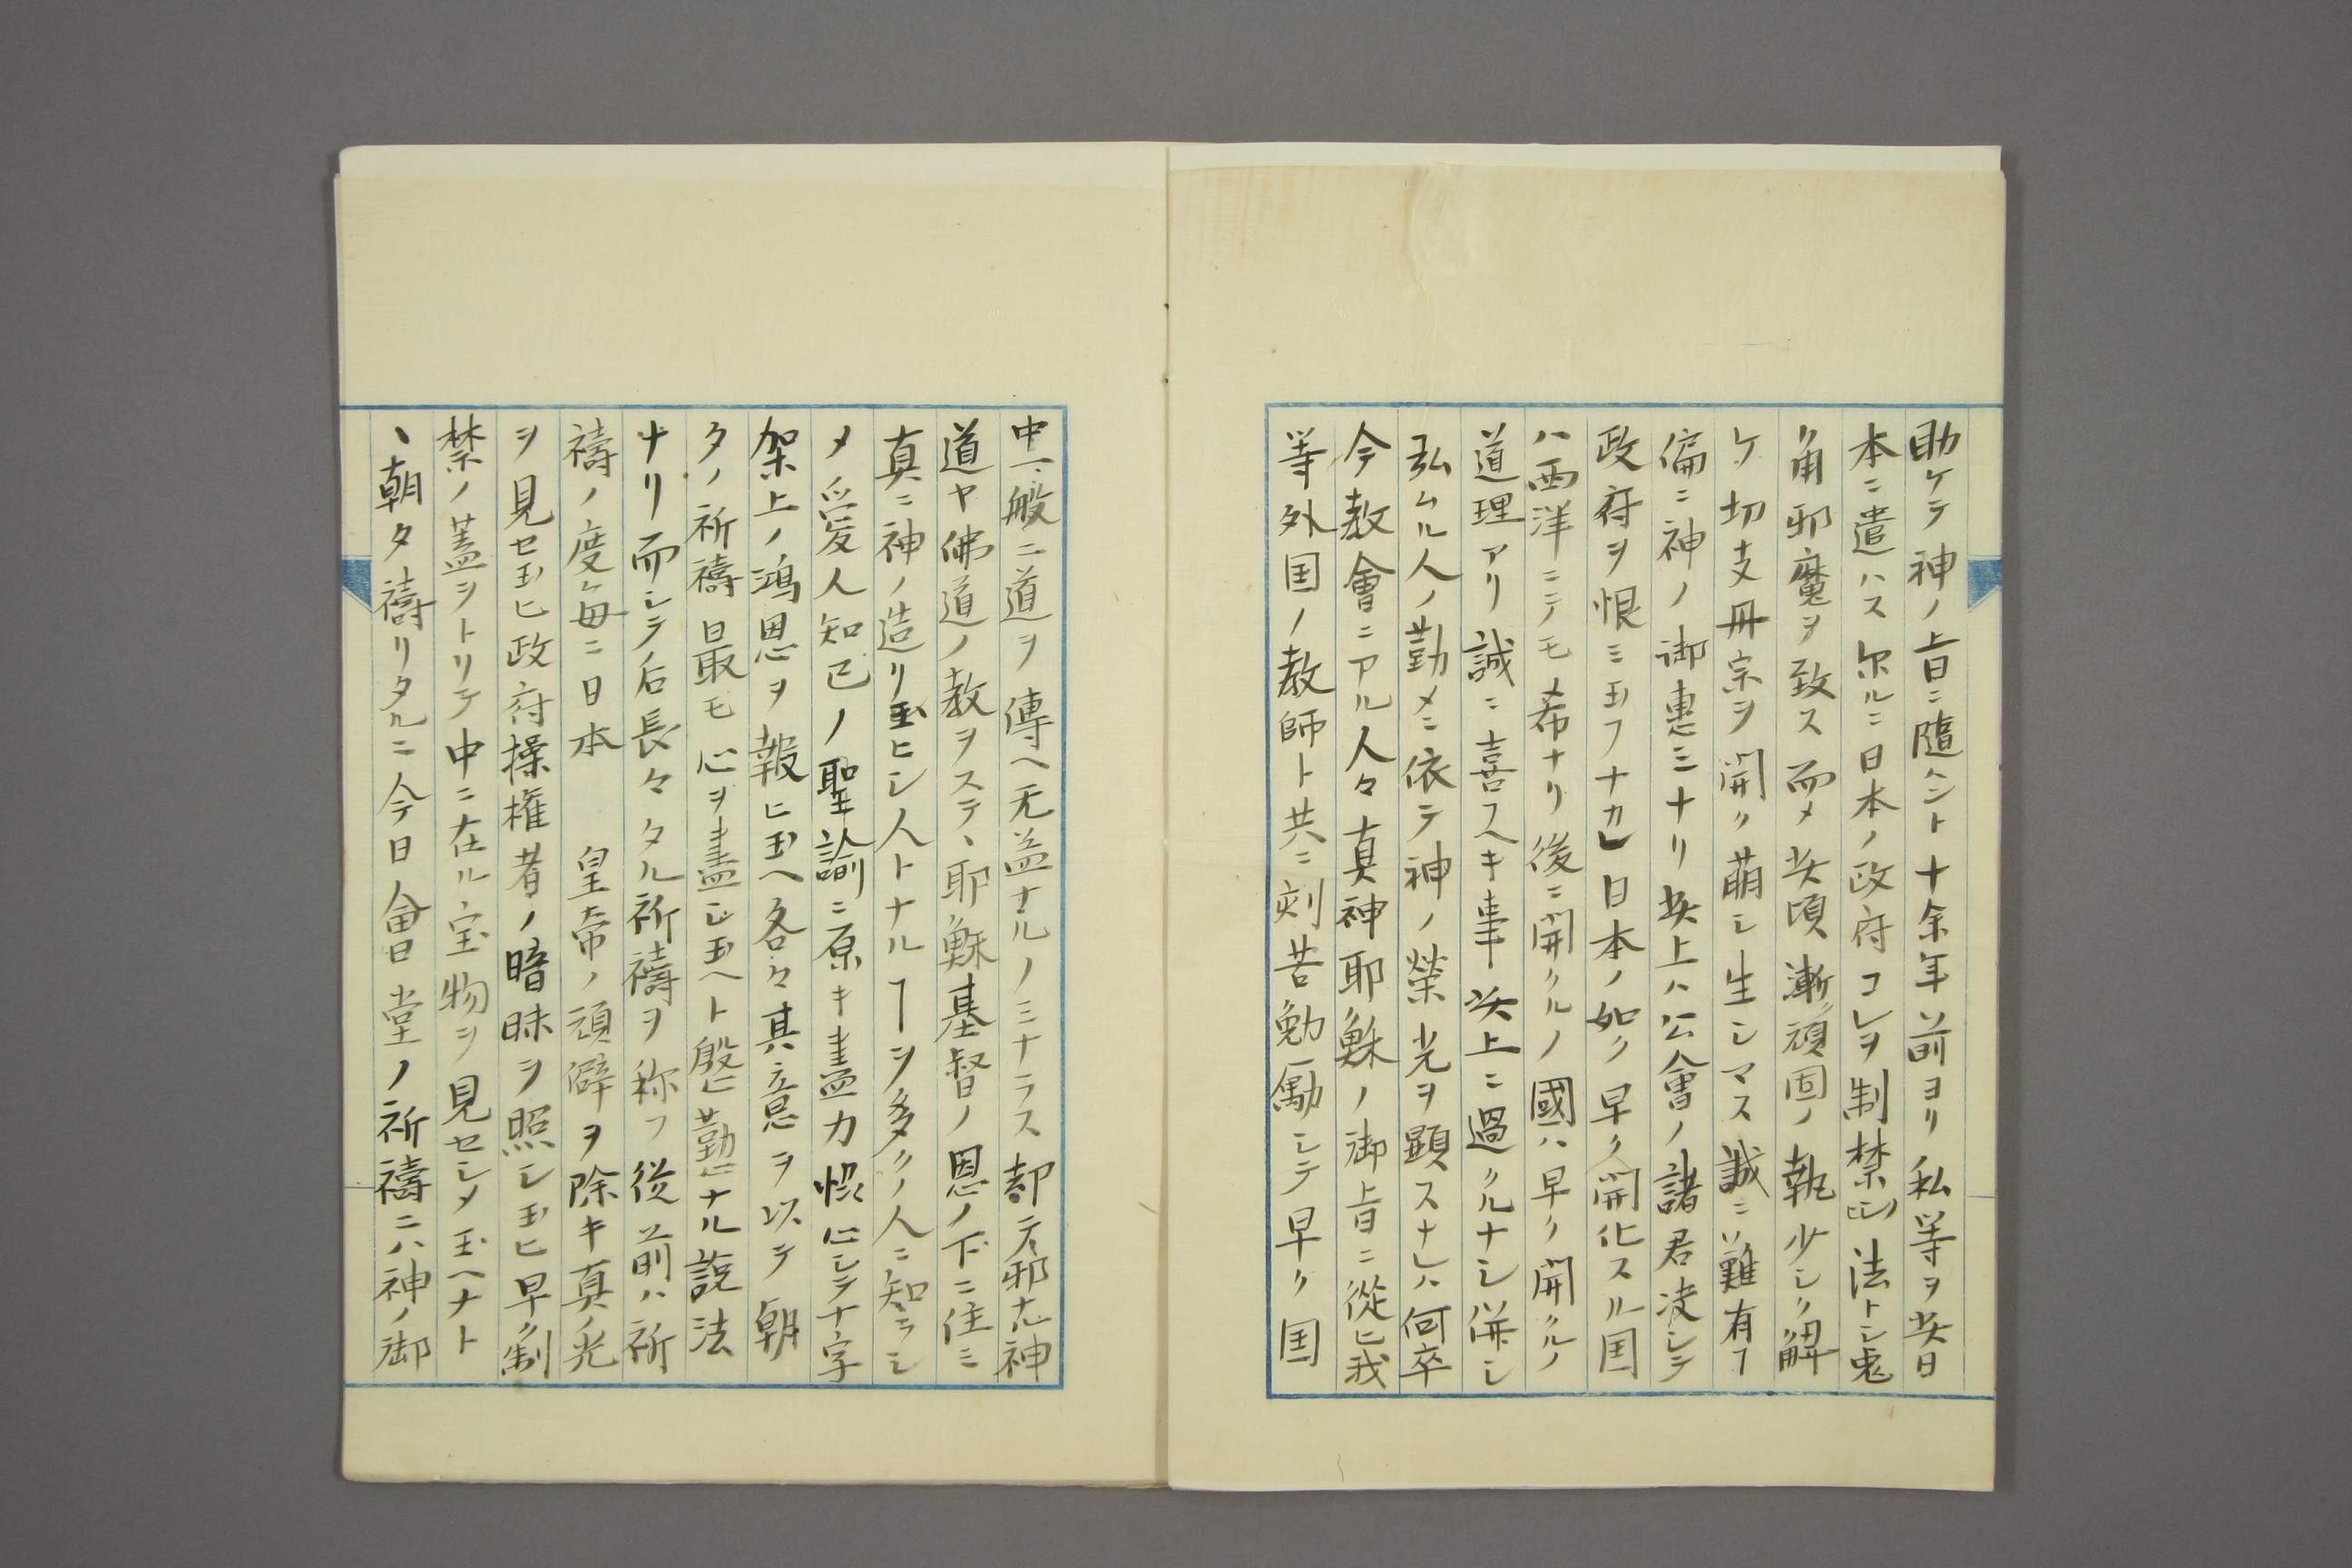 助ケテ神ノ旨ニ隨ハント十余年前ヨリ私等ヲ此日
本ニ遣ハス尓ルニ日本ノ政府コレヲ制禁シ法トシ兎
ク角邪魔ヲ致ス而メ此頃漸ク頑固ノ執少シク解
ケ切支丹宗ヲ開ク萠シ生シマス誠ニ難有フ
偏ニ神ノ御惠ミナリ此上ハ公會ノ諸君決シテ
政府ヲ恨ミ玉フナカレ日本ノ如ク早ク開化スル国
ハ西洋ニテモ希ナリ後ニ開クルノ國ハ早ク開クルノ
道理アリ誠ニ喜フヘキ事此上ニ過クルナシ併シ
弘ムル人ノ勤メニ依テ神ノ榮光ヲ顕スナレハ何卒
今教會ニアル人々真神耶穌ノ御旨ニ從ヒ我
等外国ノ教師ト共ニ刻苦勉勵シテ早ク国
中一般ニ道ヲ傳ヘ无益ナルノミナラス却テ邪ナル神
道ヤ佛道ノ教ヲステヽ耶穌基督ノ恩ノ下ニ住ミ
真ニ神ノ造リ玉ヒシ人トナルヿヲ多クノ人ニ知ラシ
メ愛人知己ノ聖諭ニ原キ盡力恢心シテ十字
架上ノ鴻恩ヲ報ヒ玉ヘ各々其意ヲ以テ朝
タノ祈禱最モ心ヲ盡シ玉ヘト慇懃ナル説法
ナリ而シテ后長々タル祈禱ヲ称フ従前ハ祈
禱ノ度毎ニ日本　皇帝ノ頑僻ヲ除キ真ノ光
ヲ見セ玉ヒ政府操権者ノ暗昧ヲ照シ玉ヒ早ク制
禁ノ蓋ヲトリテ中ニ在ル宝物ヲ見セシメ玉ヘナト
ヽ朝タ禱リタルニ今日會堂ノ祈禱ニハ神ノ御